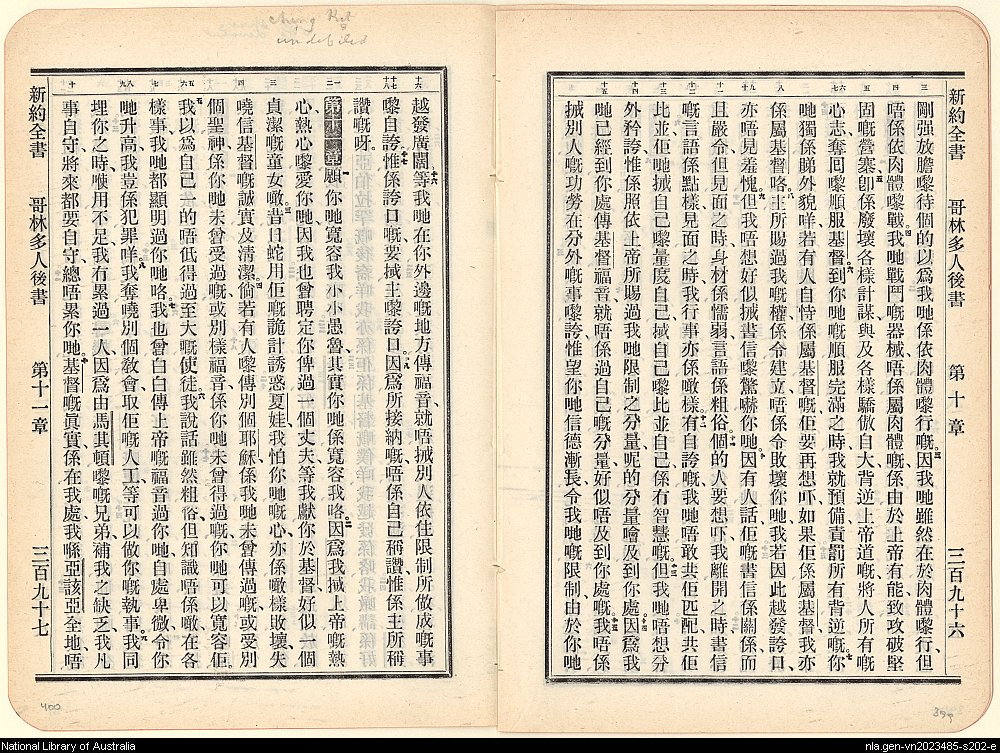 新約全書 哥林多人後書 第十章 三百九十六
剛强放膽嚟待個的以爲我哋係依肉體嚟行嘅因我哋雖然在於肉體嚟行但
唔係依肉體嚟戰我哋戰鬥嘅器械唔係屬肉體嘅係由於上帝有能致攻破堅
固嘅營寨卽係廢壞各樣計謀與及各樣驕傲自大背逆上帝道嘅將人所有嘅
心志奪囘嚟順服基督到你哋嘅順服完滿之時我就預備責罰所有背逆嘅你
哋獨係睇外貌咩若有人自恃係屬基督嘅佢要再想吓如果佢係屬基督我亦
係屬基督咯主所賜過我嘅權係令建立唔係令敗壞你哋我若因此越發誇口
亦唔見羞愧但我唔想好似搣書信嚟驚嚇你哋因有人話佢嘅書信係關係而
且嚴令但見面之時身材係懦弱言語係粗俗個的人要想吓我離開之時書信
嘅言語係點樣見面之時我行事亦係噉樣有自誇嘅我哋唔敢共佢匹配共佢
此並但佢哋搣自己嚟量度自己搣自己嚟比並自己係冇智慧嘅但我哋唔想分
外矜誇惟係照依上帝所賜過我哋限制之分量呢的分量噲及到你處因爲我
哋已經到你處傳基督福音就唔係過自己嘅分量好似唔及到你處嘅我唔係
搣別人嘅功勞在分外嘅事嚟誇惟望你哋信德漸長令我哋嘅限制由於你哋
越發廣闊等我哋在你外邊嘅地方傳福音就唔搣別人依住限制所做成嘅事
嚟自誇惟係誇口嘅要搣主嚟誇口因爲所接納嘅唔係自己稱讚惟係主所稱
讚嘅呀
第十一章願你哋寬容我小小愚魯其實你哋係寬容我咯因爲我搣上帝嘅熱
心熱心嚟愛你哋因我也曾聘定你俾過一個丈夫等我獻你於基督好似一個
貞潔嘅童女噉昔日蛇用佢嘅詭計誘惑夏娃我怕你哋嘅心亦係噉樣敗壞失
嘵信基督嘅誠實及淸潔倘若有人嚟傳別個耶穌係我哋未曾傳過嘅或受別
個聖神係你哋未曾受過嘅或別樣福音係你哋未曾得過嘅你哋可以寬容佢
我以爲自己一的唔低得過至大嘅使徒我說話雖然粗俗但知識唔係噉在各
樣事我哋都顯明過你哋咯我也曾白白傳上帝嘅福音過你哋自處卑微令你
哋升高我豈係犯罪咩我奪嘵別個敎會取佢嘅人工等可以做你嘅執事我同
埋你之時喉用不足我冇累過一人因爲由馬其頓嚟嘅兄弟補我之缺乏我凡
事自守將來都要自守總唔累你哋基督嘅眞實係在我處我喺亞該亞全地唔
新約全書 哥林多人後書 第十一章 三百九十七
undefiled
400
399
National Library of Australia
nla.gen-vn2023485-s202-e